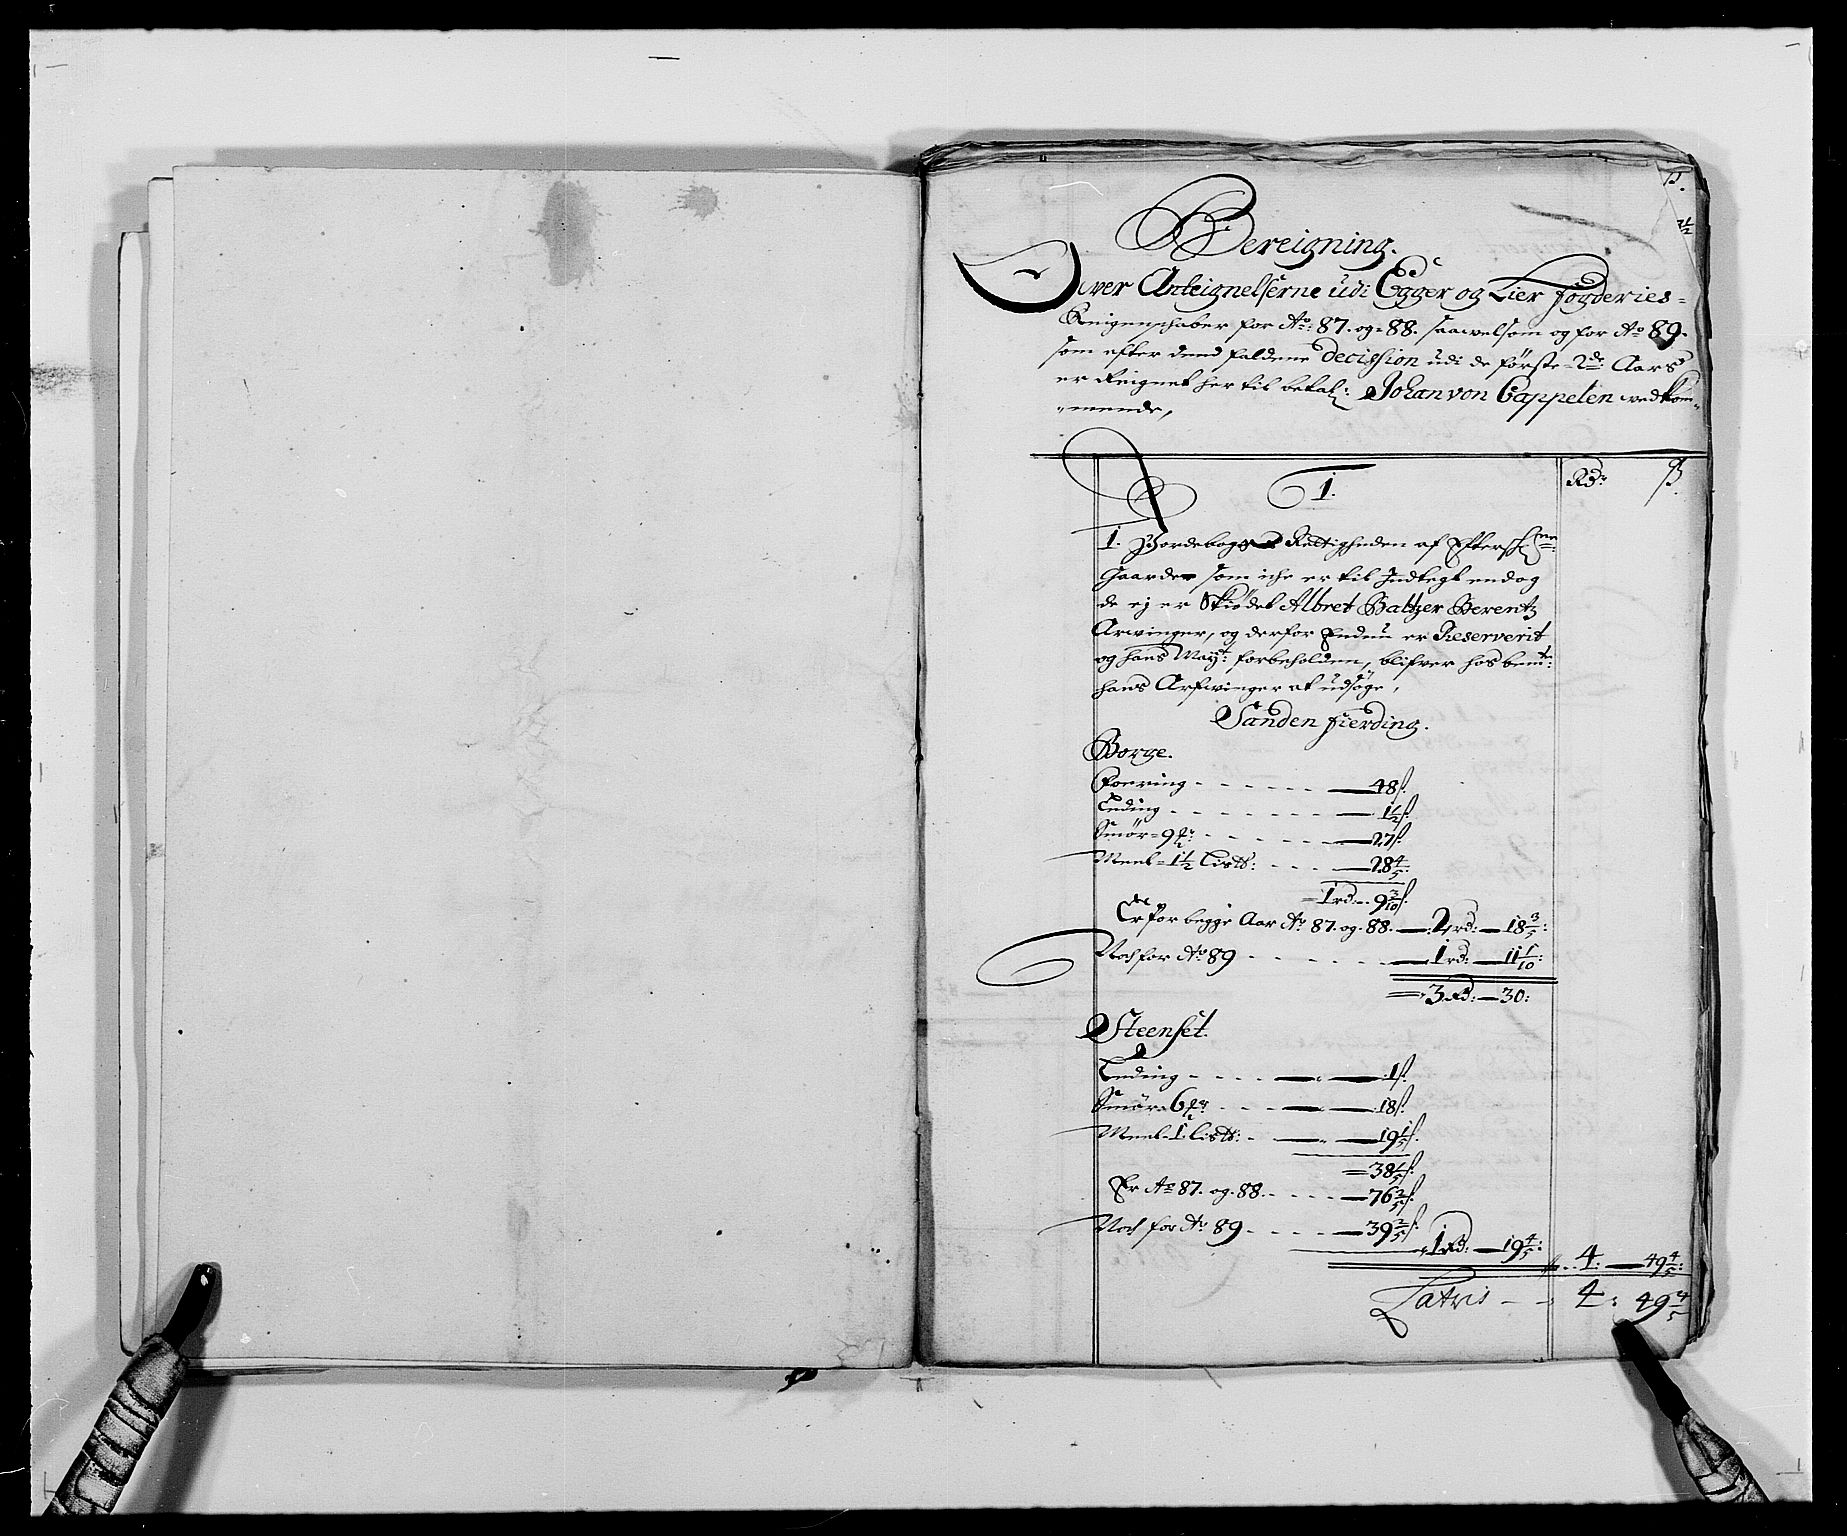 Bereigning.
Over Anteignelserne udi Egger og Lier fogderies=
Reigenschaber for Ao: 87. og 88. saavelsom og for Ao 89.
som efter dend faldene decission udi de første 2de Aars
er Reignet her til betal: Johan von Cappelen vedkom=
=mende,
1.
Rd: ß.
1. Jordebogs Rettigheden af Efterschrne
Gaarder som iche er til Indtegt endog
de ej er Skiødet Albret Baltzer Berentz
Arvinger, og derfor Endnu er Reserverit
og hans Mayt: forbeholden, blifver hos bemte:
hans Arfvinger at udsøge,
Sanden fierding.
Borge.
Foering - - - - - - 48 ß.
Leding - - - - - - - 1½ ß.
Smør = 9 - - - - - 27 ß.
Meel = 1½ Listb: - - - - 28 4/5:
= 1 rd. - 9 3/10 ß.
Er for begge Aar Ao: 87. og 88. 2 rd: 18 3/5:
Noch for Ao 89 - - - - - - 1 rd: 11 1/10:
= 3 Rd: 30:
Steenset.
Leding - - - - 1 ß.
Smør = 6 - - - 18 ß.
Meel = 1 listb: - 19 1/5 ß.
= 38 1/5 ß.
Er Ao 87. og 88. - - - - 76 2/5 ß.
Noch for Ao 89 - - - - 39 2/5 ß.
1 Rd: 19 4/5: 4: 49 4/5:
Latris - - 4: 49 4/5